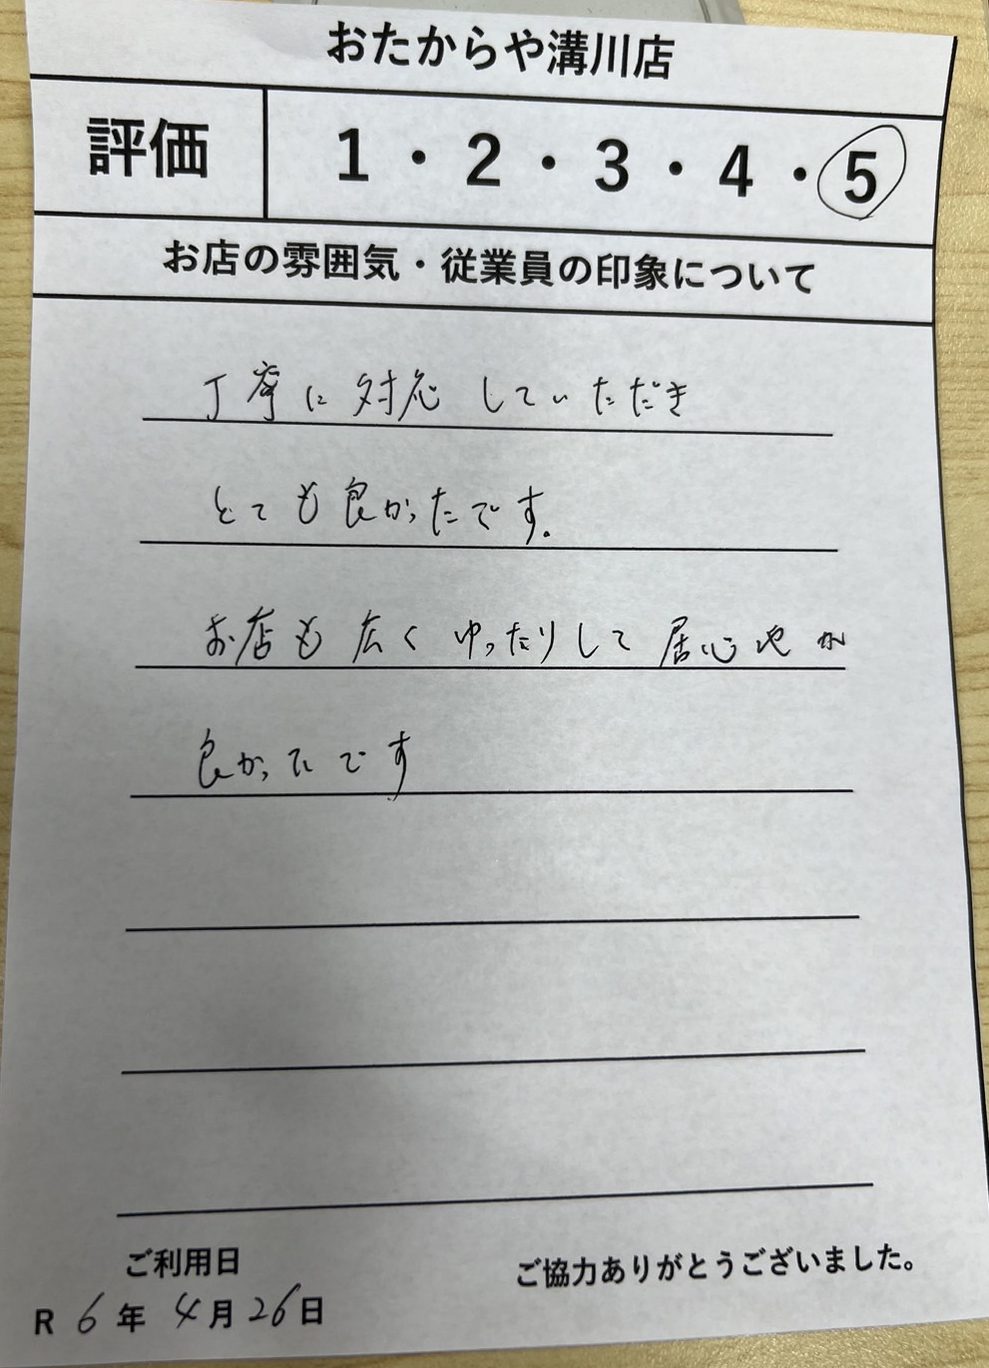 おたからや溝川店
評価 1・2・3・4・5
お店の雰囲気・従業員の印象について
丁寧に対応していただき
とても良かったです.
お店も広くゆったりして居心地が
良かったです
ご利用日
ご協力ありがとうございました。
R 6年 4月26日